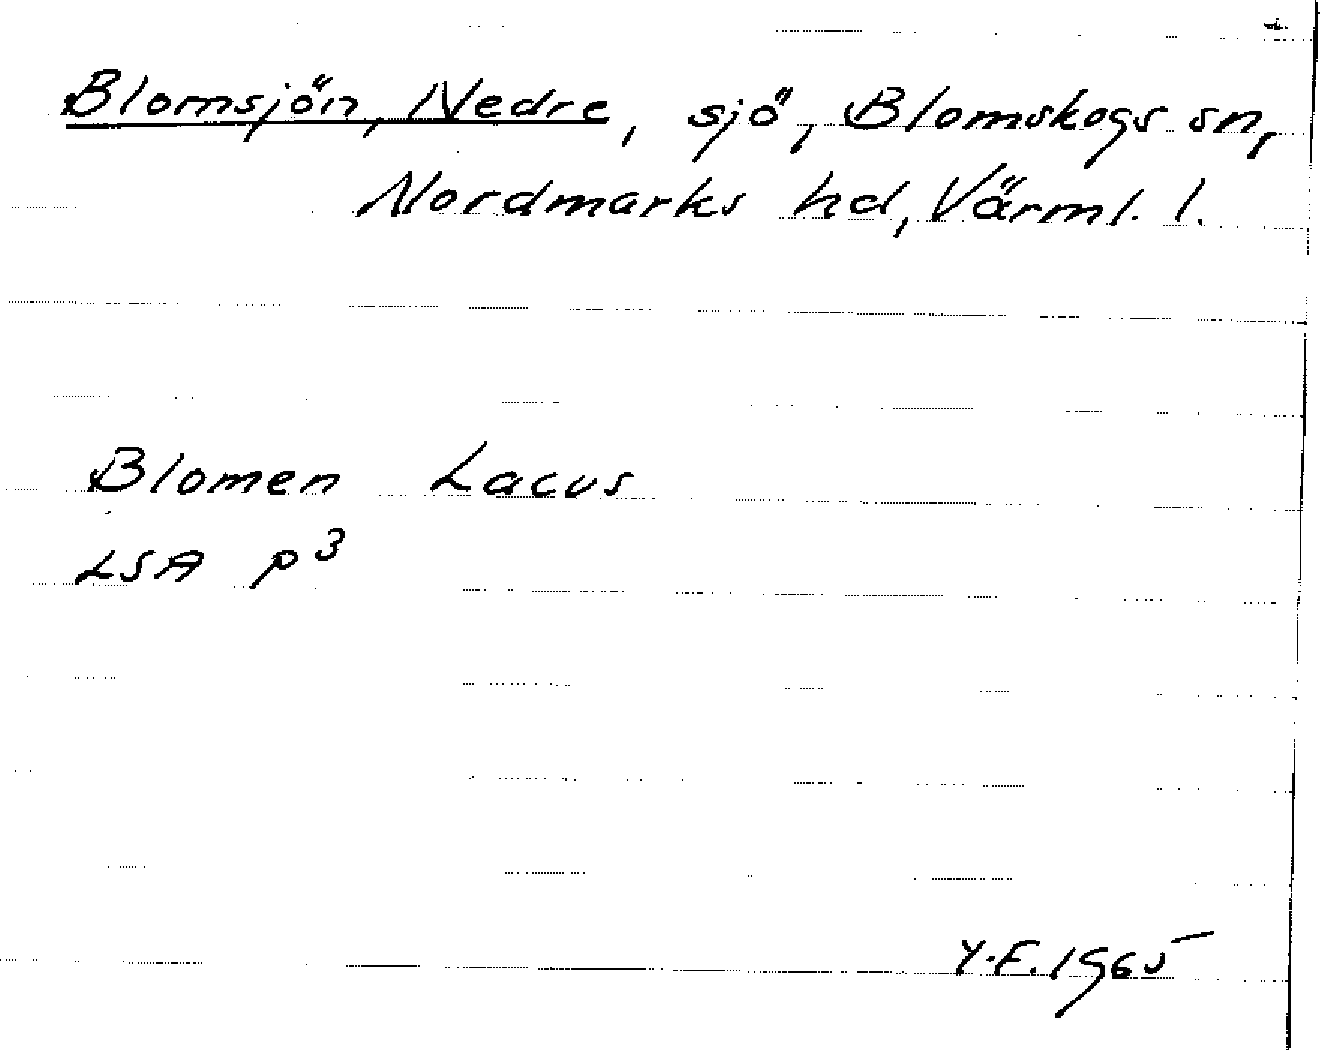 Blomsjön, Nedre, sjö, Blomskogs sn,
Nordmarks hd, Värml. l.
Blomen Lacus
LSA p³
Y.F. 1965